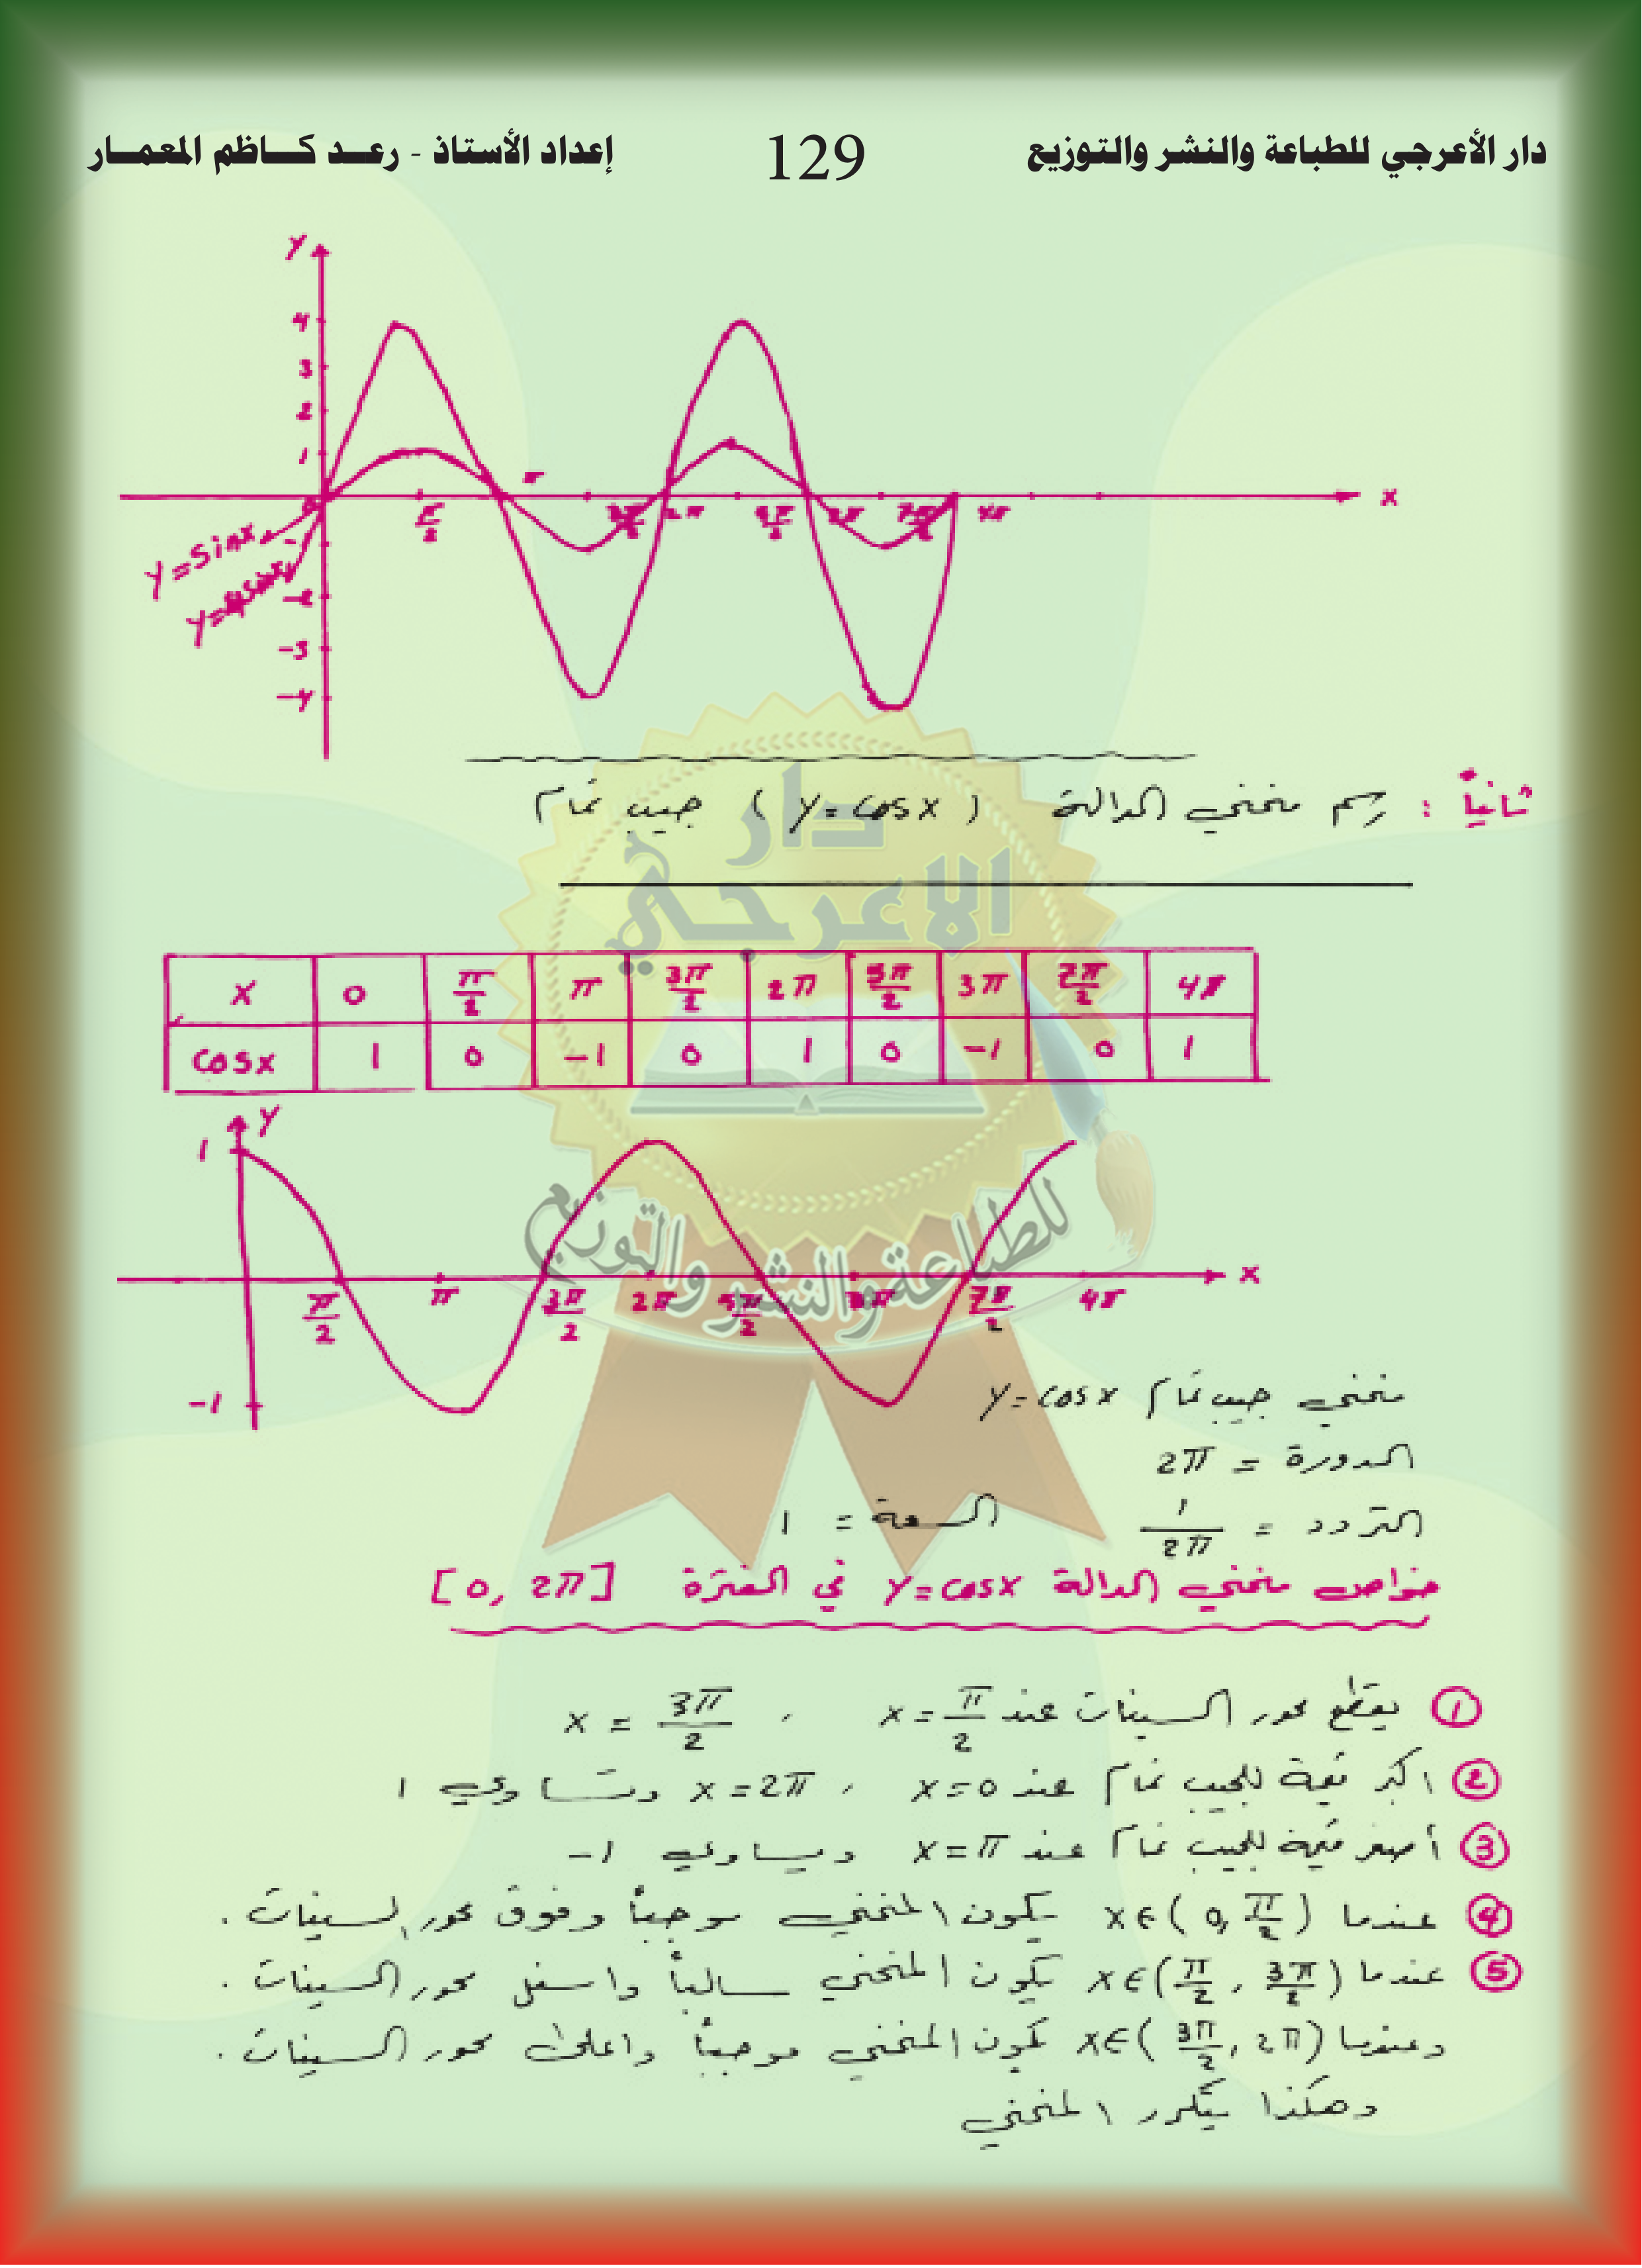 دار الأعرجي للطباعة والنشر والتوزيع 129 إعداد الأستاذ - رعـــد كـــاظم المعمـــار
y
4
3
2
1
π
x
0 π/2 3π/2 2π 5π/2 3π 7π/2 4π
-1
y=sinx
y=4sinx
-2
-3
-4
ثانياً : رسم منحني الدالة ( y=cosx ) جيب تمام
دار
الاعرجي
x 0 π/2 π 3π/2 2π 5π/2 3π 7π/2 4π
cosx 1 0 -1 0 1 0 -1 0 1
y
1
للطباعة والنشر والتوزيع
x
π/2 π 3π/2 2π 5π/2 3π 7π/2 4π
-1
منحني جيب تمام y=cosx
الدورة = 2π
التردد = 1/2π السعة = 1
خواص منحني الدالة y=cosx في الفترة [0, 2π]
① يقطع محور السينات عند x=π/2 , x=3π/2
② اكبر قيمة للجيب تمام عند x=0 , x=2π وتساوي 1
③ أصغر قيمة للجيب تمام عند x=π ويساوي -1
④ عندما x∈(0,π/2) يكون المنحني موجباً وفوق محور السينات .
⑤ عندما x∈(π/2 , 3π/2) يكون المنحني سالباً واسفل محور السينات .
وعندما x∈(3π/2, 2π) يكون المنحني موجباً واعلى محور السينات .
وهكذا يتكرر المنحني